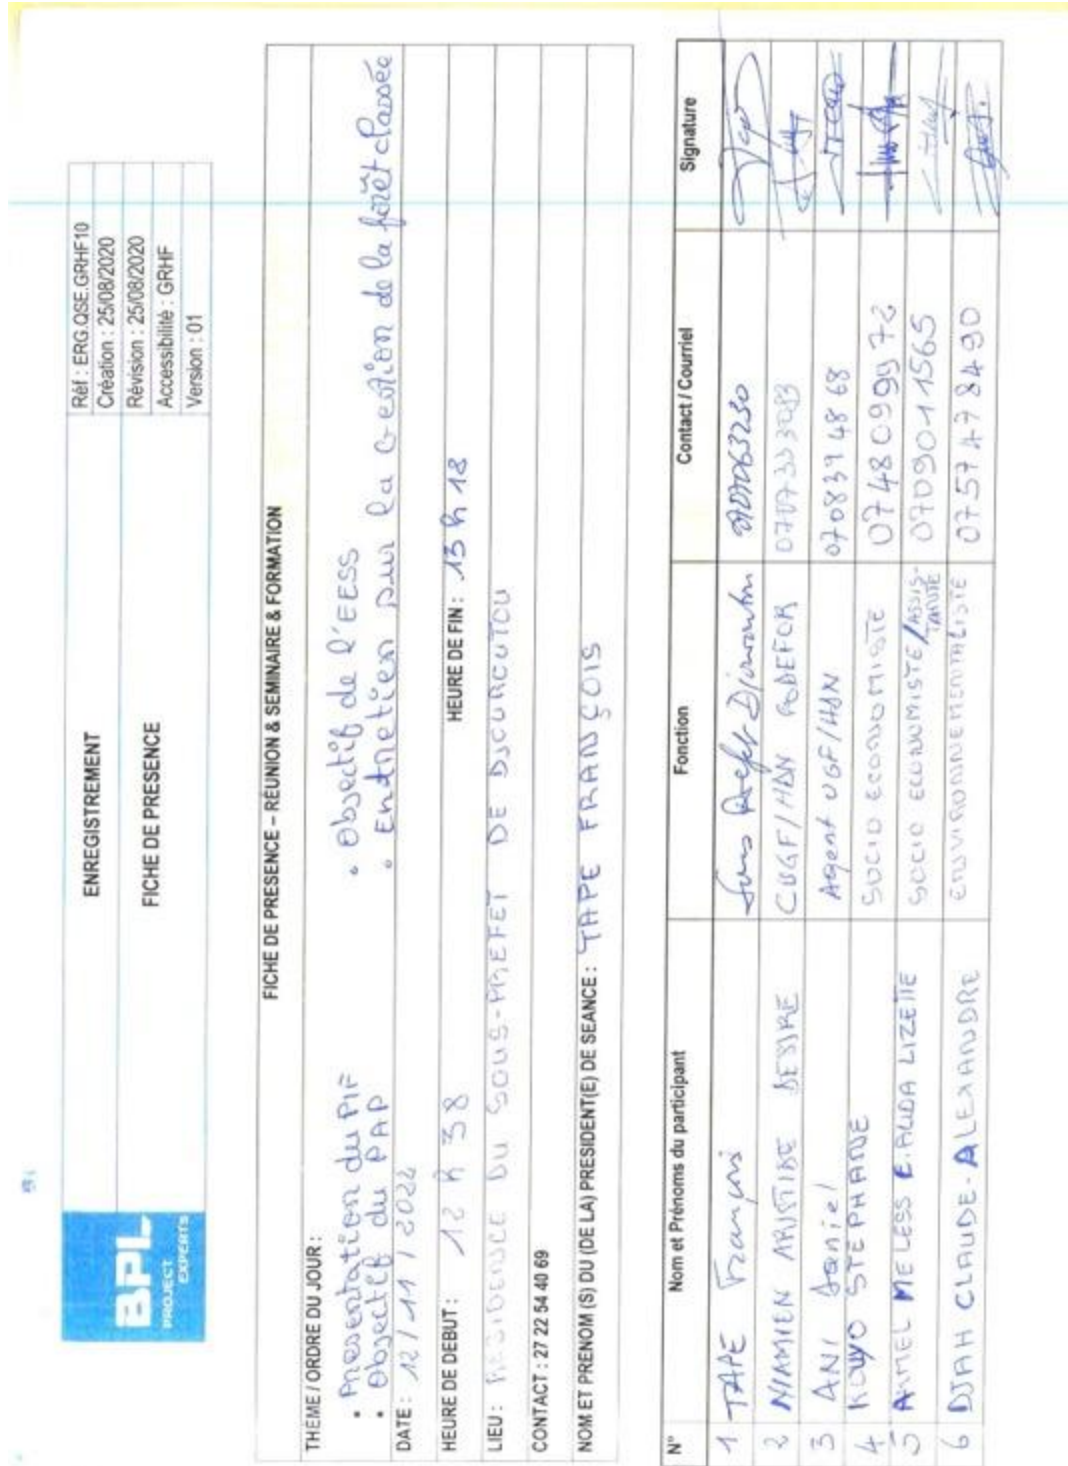 BPL
PROJECT
EXPERTS
ENREGISTREMENT
FICHE DE PRESENCE
Réf : ERG.QSE.GRHF10
Création : 25/08/2020
Révision : 25/08/2020
Accessibilité : GRHF
Version : 01
FICHE DE PRESENCE – REUNION & SEMINAIRE & FORMATION
THEME / ORDRE DU JOUR :
• Presentation du PIF
• Objectif du PAP
• Objectif de l'EESS
• Entretien sur la Gestion de la forêt classée
DATE : 12/11/2022
HEURE DE DEBUT : 12 h 38 HEURE DE FIN : 13 h 18
LIEU : RESIDENCE DU SOUS-PREFET DE DJOUROUTOU
CONTACT : 27 22 54 40 69
NOM ET PRENOM (S) DU (DE LA) PRESIDENT(E) DE SEANCE : TAPE FRANÇOIS
N° Nom et Prénoms du participant Fonction Contact / Courriel Signature
1 TAPE François Sous Préfet Djouroutou
2 NIAMIEN ARISTIDE DESIRE CUGF/HDN SODEFOR
3 ANI Daniel Agent UGF/HDN 0708394868
4 KOUYO STEPHANE SOCIO ECONOMISTE 0748099972
5 AMEL MELESS E. ALIDA LIZETTE SOCIO ECONOMISTE/ASSISTANTE 0709011565
6 DJAH CLAUDE-ALEXANDRE ENVIRONNEMENTALISTE 0757478490